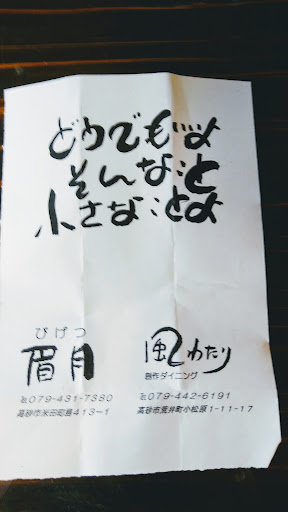 どうでもいいよ
そんなこと
小さなことよ
びげつ
眉月
℡079-431-7380
高砂市米田町島413-1
風わたり
創作ダイニング
℡079-442-6191
高砂市荒井町小松原1-11-17